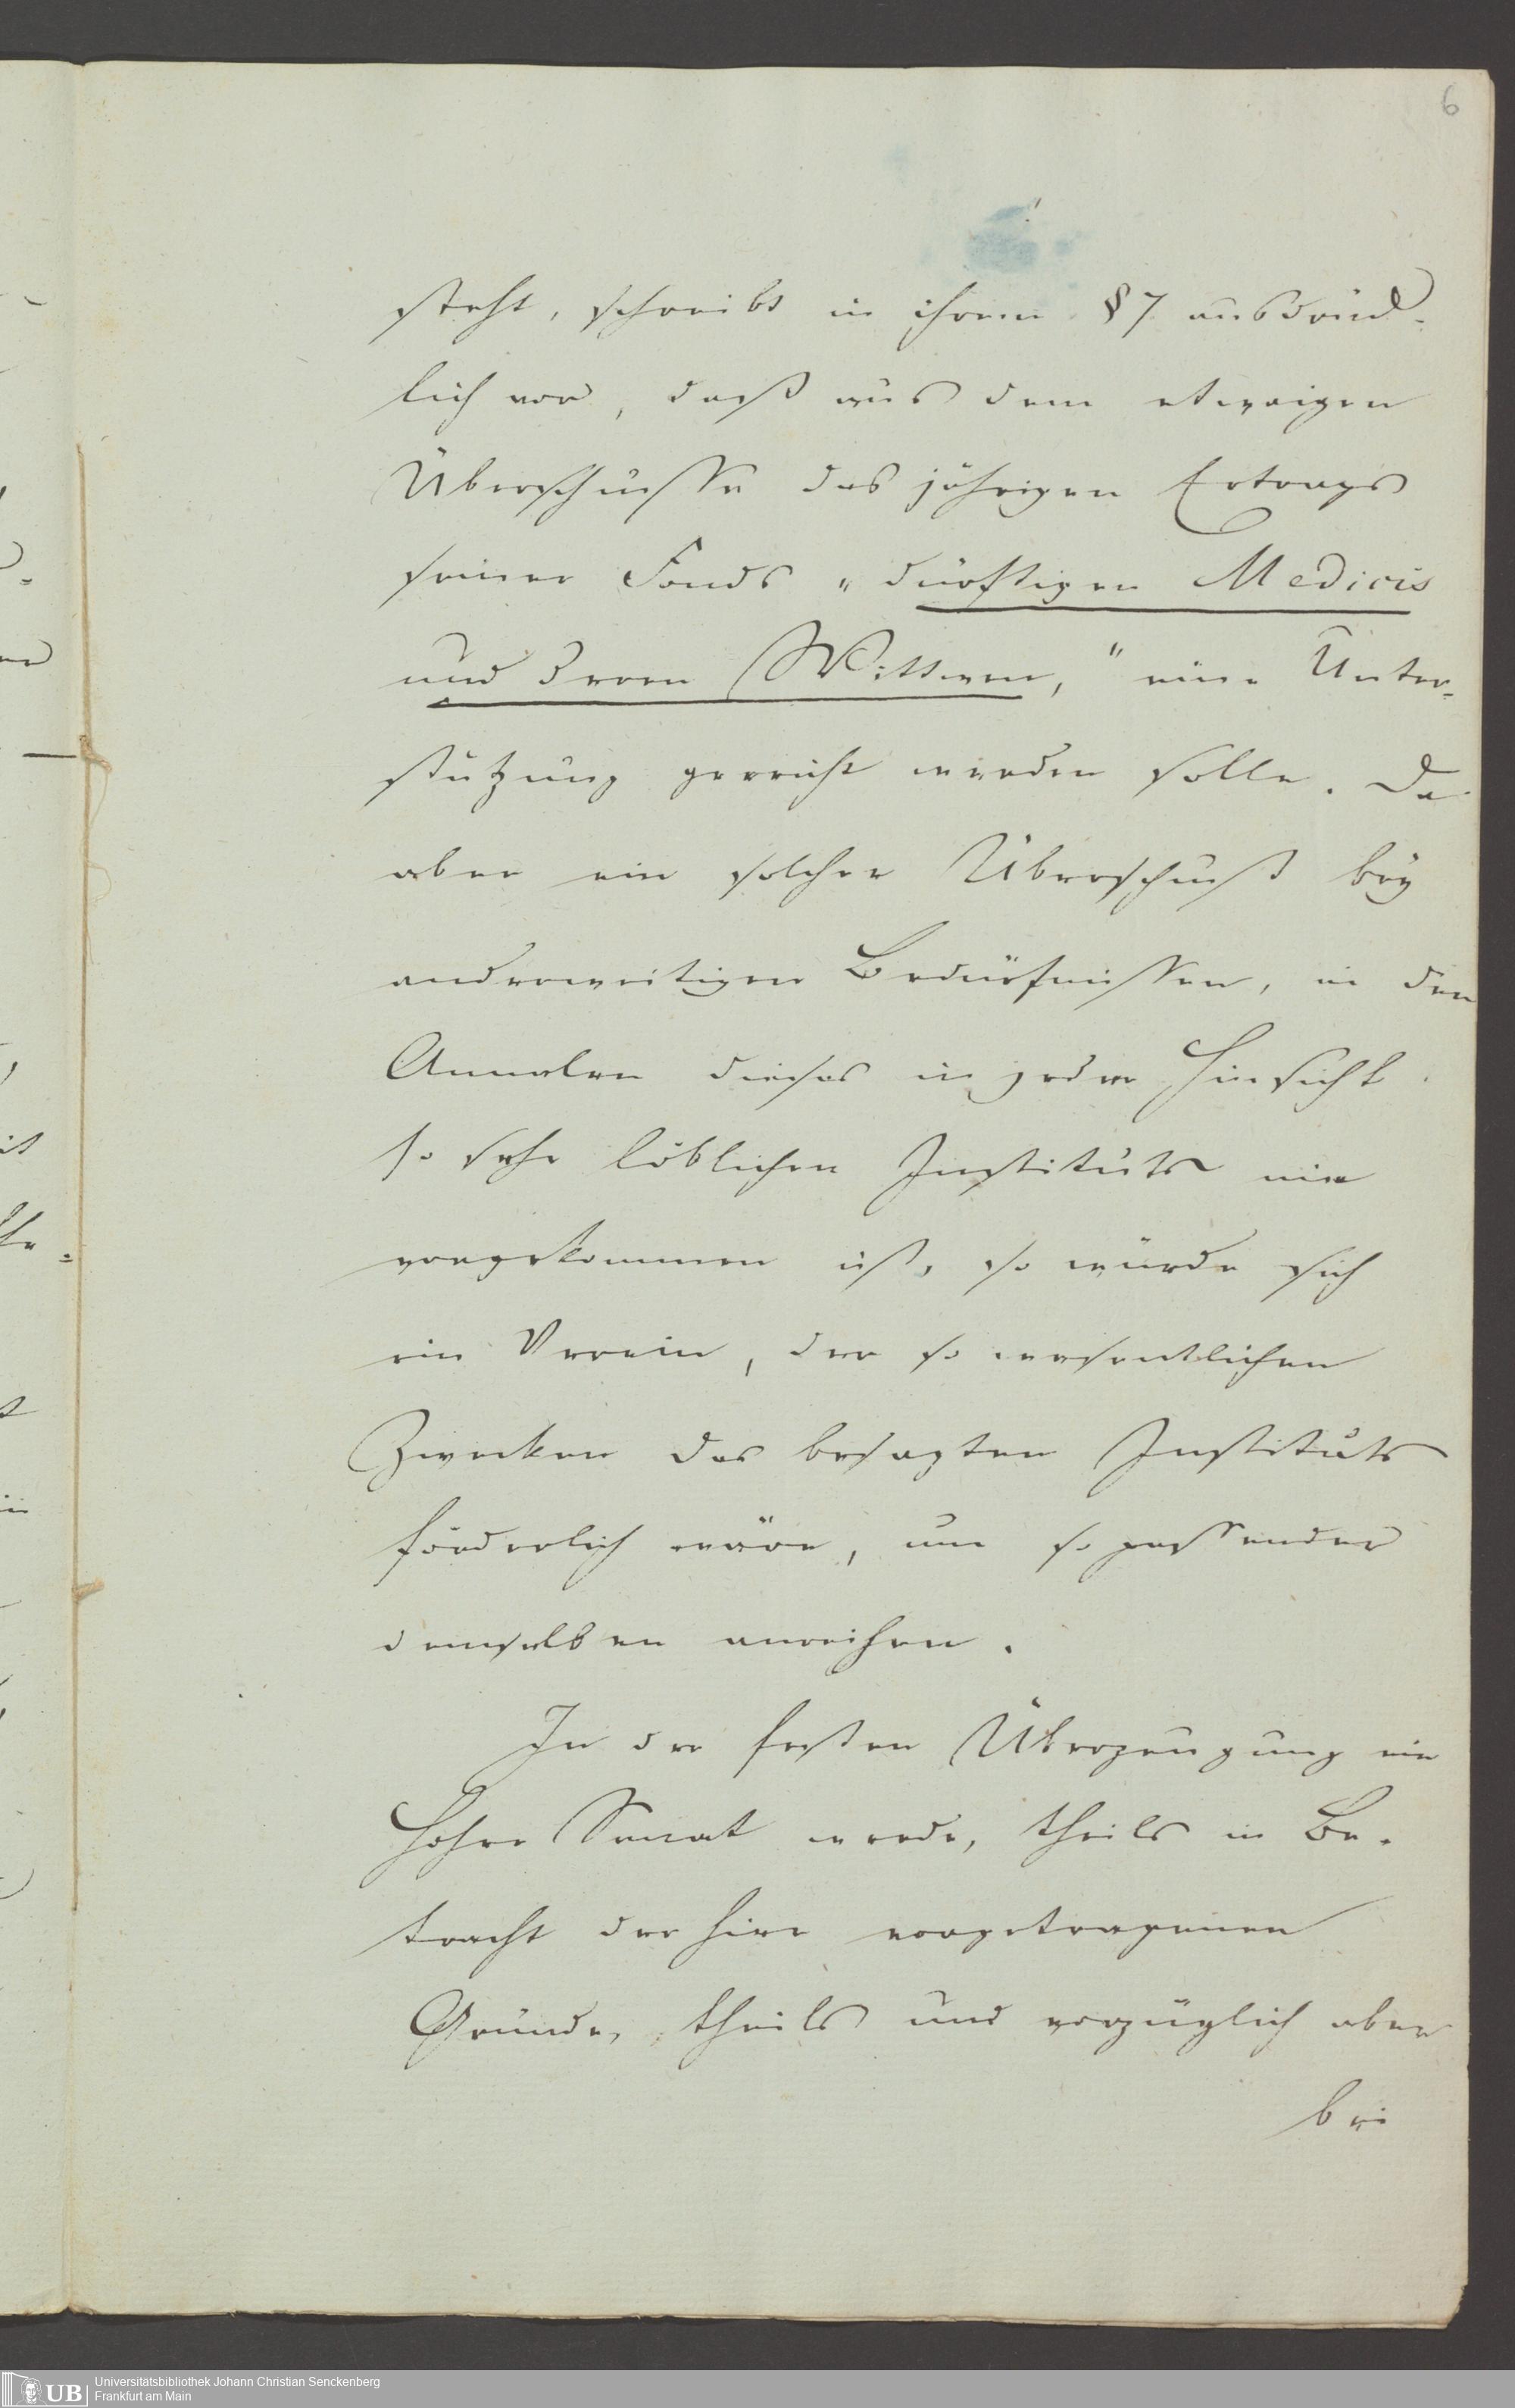 6
steht, schreibt in ihrem § 7 ausdrück-
lich vor, daß aus dem etwaigen
Überschusse des jährigen Ertrags
seiner Fonds „dürftigen Medicis
und deren Wittwen," eine Unter-
stützung gereicht werden solle. Da
aber ein solcher Überschuß bey
anderweitigen Bedürfnissen, in den
Annalen dieses in jeder Hinsicht
so sehr löblichen Instituts nie
vorgekommen ist, so würde sich
ein Verein, der so wesentlichen
Zwecken des besagten Instituts
förderlich wäre, um so passender
demselben anreihen.
In der festen Überzeugung ein
Hoher Senat werde, theils in Be-
tracht der hier vorgetragenen
Gründe, theils und vorzüglich aber
bei
UB
Universitätsbibliothek Johann Christian Senckenberg
Frankfurt am Main